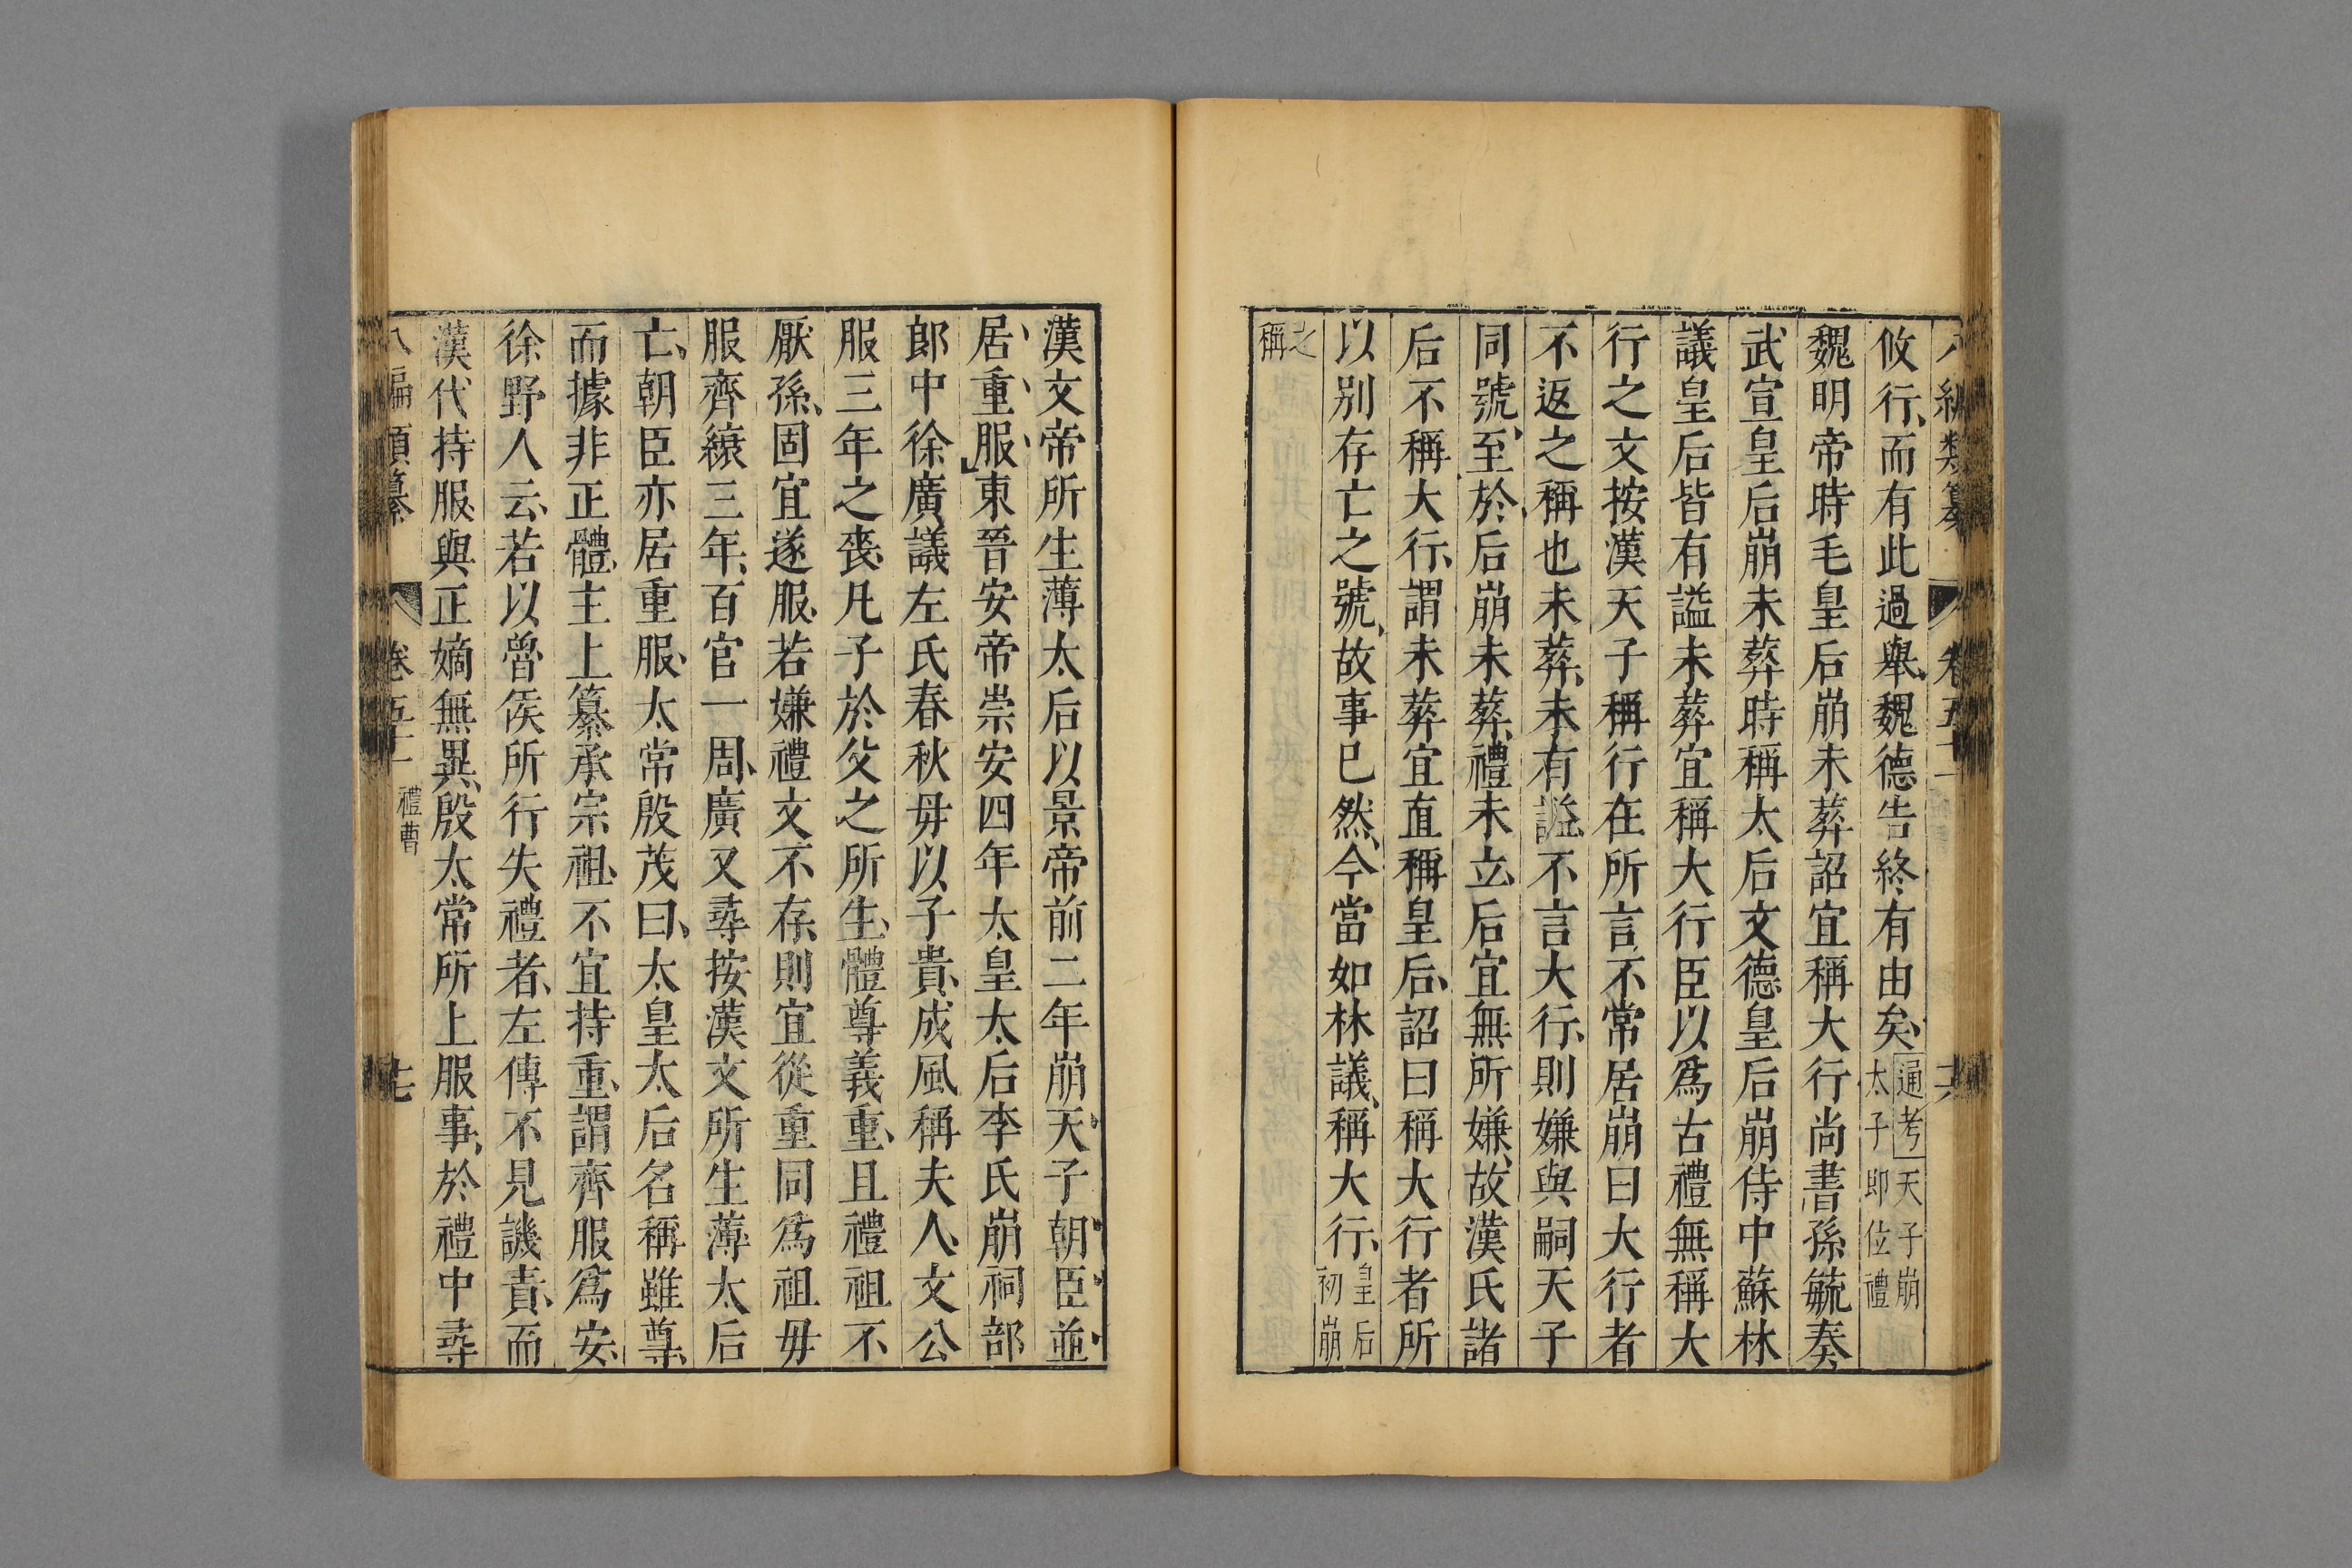 攸行而有此過舉魏德告終有由矣通考天子崩太子卽位禮
魏明帝時毛皇后崩未葬詔宜稱大行尚書孫毓奏
武宣皇后崩未葬時稱太后文德皇后崩侍中蘇林
議皇后皆有謚未葬宜稱大行臣以爲古禮無稱大
行之文按漢天子稱行在所言不常居崩曰大行者
不返之稱也未葬未有謚不言大行則嫌與嗣天子
同號至於后崩未葬禮未立后宜無所嫌故漢氏諸
后不稱大行謂未葬宜直稱皇后詔曰稱大行者所
以别存亡之號故事已然今當如林議稱大行皇后初崩
之稱
漢文帝所生薄太后以景帝前二年崩天子朝臣並
居重服東晉安帝崇安四年太皇太后李氏崩祠部
郎中徐廣議左氏春秋毋以子貴成風稱夫人文公
服三年之喪凡子於父之所生體尊義重且禮祖不
厭孫固宜遂服若嫌禮文不存則宜從重同爲祖毋
服齊縗三年百官一周廣又尋按漢文所生薄太后
亡朝臣亦居重服太常殷茂曰太皇太后名稱雖尊
而據非正體主上纂承宗祖不宜持重謂齊服爲安
徐野人云若以魯侯所行失禮者左傳不見譏責而
漢代持服與正嫡無異殷太常所上服事於禮中尋
八編類纂 卷五十二 禮曹 十七